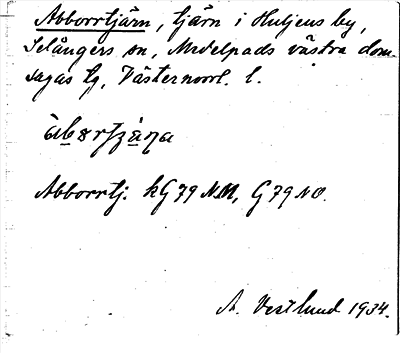 Abborrtjärn, tjärn i Huljens by,
Selångers sn, Medelpads västra dom-
sagas tg, Västernorrl. l.
Abborrtj. kG79 NM, G79 NO.
A. Vestlund 1934.